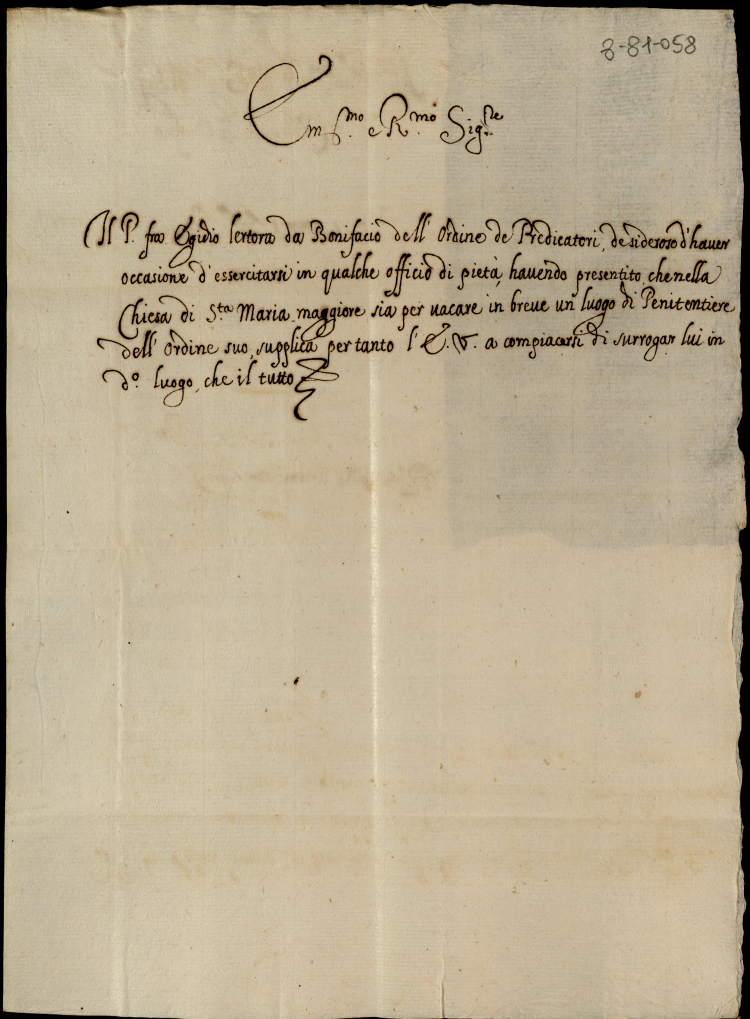 8-81-058
Em.mo e R.mo Sig.re
Il P. fra Egidio lertora da Bonifacio dell' Ordine de Predicatori, desideroso d'hauer
occasione d'essercitarsi in qualche officio di pietà, hauendo presentito, che nella
Chiesa di S.ta Maria maggiore sia per vacare in breve un luogo di Penitentiere
dell' Ordine suo, supplica per tanto l' E. V. a compiacersi di surrogar lui in
d.o luogo, che il tutto